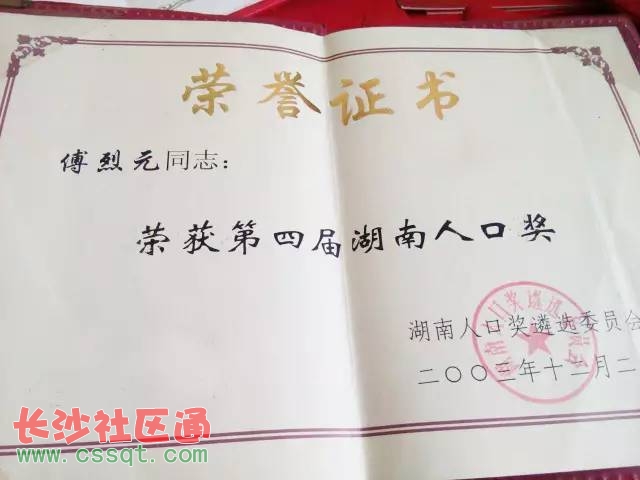 荣誉证书
傅烈元同志：
荣获第四届湖南人口奖
湖南人口奖遴选委员会
二〇〇三年十二月二
长沙社区通
www.cssqt.com